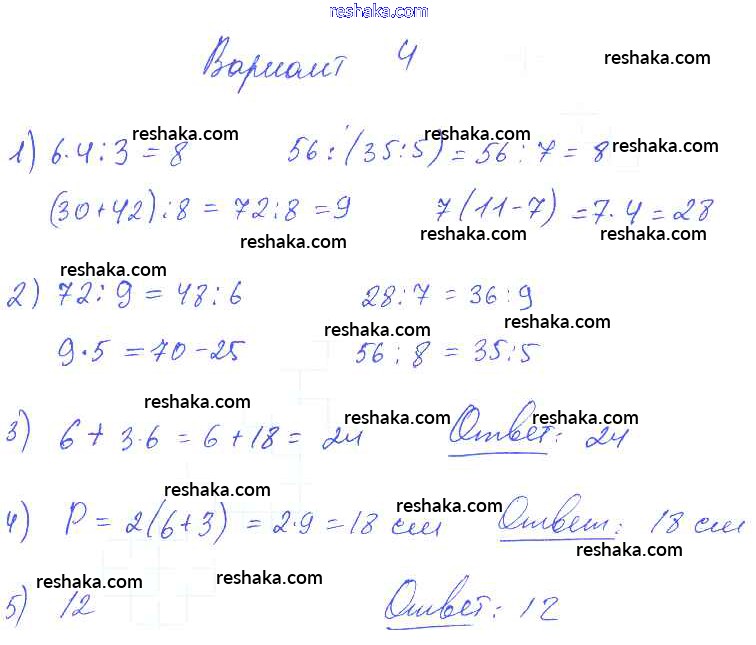 reshaka.com
Вариант 4
reshaka.com
reshaka.com reshaka.com reshaka.com
1) 6·4:3=8 56:(35:5)=56:7=8
(30+42):8=72:8=9 7(11-7)=7·4=28
reshaka.com reshaka.com
reshaka.com
2) 72:9=48:6 28:7=36:9
reshaka.com reshaka.com
9·5=70-25 56:8=35:5
reshaka.com reshaka.com reshaka.com
3) 6+3·6=6+18=24 Ответ: 24
reshaka.com reshaka.com reshaka.com
4) P=2(6+3)=2·9=18 см Ответ: 18 см
reshaka.com
reshaka.com reshaka.com reshaka.com
5) 12 Ответ: 12